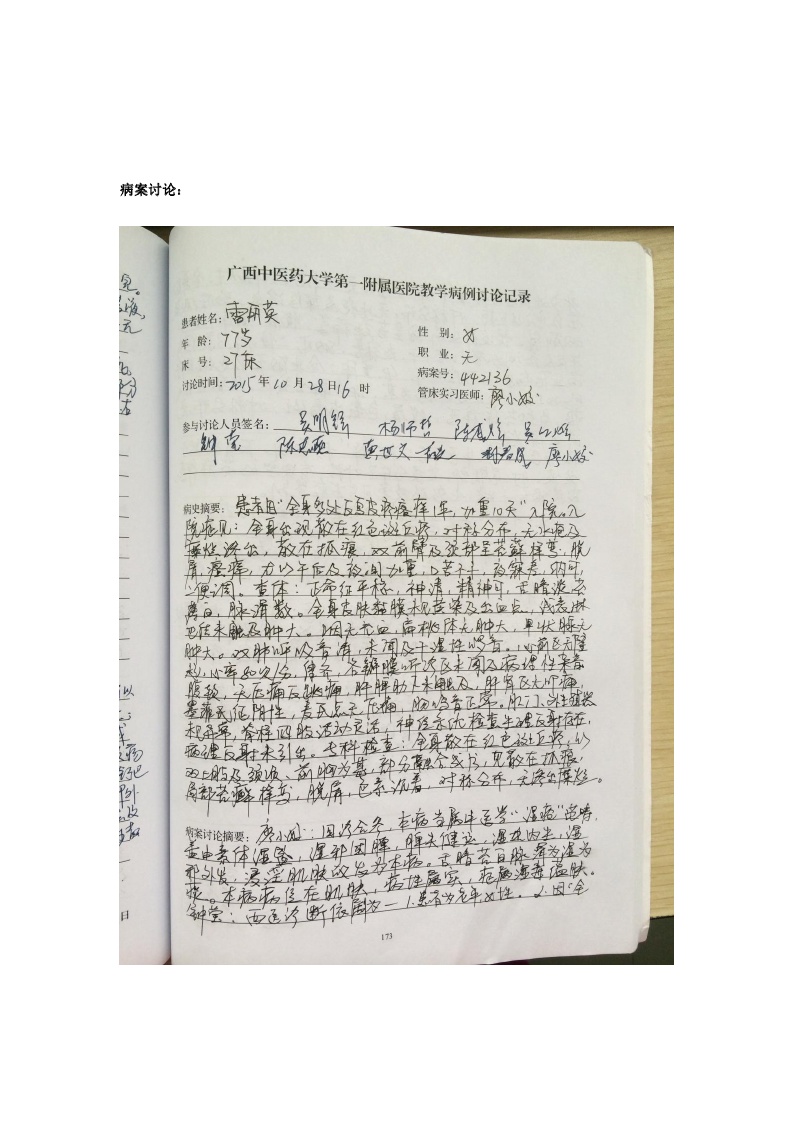 病案讨论：
广西中医药大学第一附属医院教学病例讨论记录
患者姓名：雷用英
性 别：女
年 龄：77岁
职 业：无
床 号：27床
病案号：442136
讨论时间：2015年10月28日16时
管床实习医师：廖小姣
参与讨论人员签名：吴明 杨师哲
钟莹 廖小姣
病史摘要：患者因“全身多处反复皮疹瘙痒1年，加重10天”入院。入
院症见：全身出现散在红色斑丘疹，对称分布，无水疱及
糜烂渗出，散在抓痕，双前臂及颈部呈苔藓样变，脱
屑，瘙痒，尤以午后及夜间加重，口苦口干，夜寐差，纳可，
二便调。查体：生命征平稳，神清，精神可，舌暗淡苔
黄白，脉滑数。全身皮肤黏膜未见黄染及出血点，浅表淋
巴结未触及肿大。咽无充血，扁桃体无肿大，甲状腺无
肿大。双肺呼吸音清，未闻及干湿性啰音。心前区无隆
起，心率80次/分，律齐，各瓣膜听诊区未闻及病理性杂音
腹软，无压痛反跳痛，肝脾肋下未触及，肝肾区无叩痛，
墨菲氏征阴性，麦氏点无压痛，肠鸣音正常。肛门、外生殖器
未见异常，脊柱四肢活动灵活，神经系统检查生理反射存在，
病理反射未引出。专科检查：全身散在红色斑丘疹，以
双上肢及颈项、前胸为甚，部分融合成片，见散在抓痕，
局部苔癣样变，脱屑，色素沉着，对称分布，无渗出糜烂。
病案讨论摘要：廖小姣：四诊合参，本病当属中医学“湿疮”范畴，
盖由素体湿盛，湿邪困脾，脾失健运，湿热内生，湿
邪外发，浸淫肌肤故发为本病。舌暗苔白脉滑为湿为
痰。本病病位在肌肤，病性属实，
钟莹：西医诊断依据为 1.患者为老年女性。2.因“全
173
日